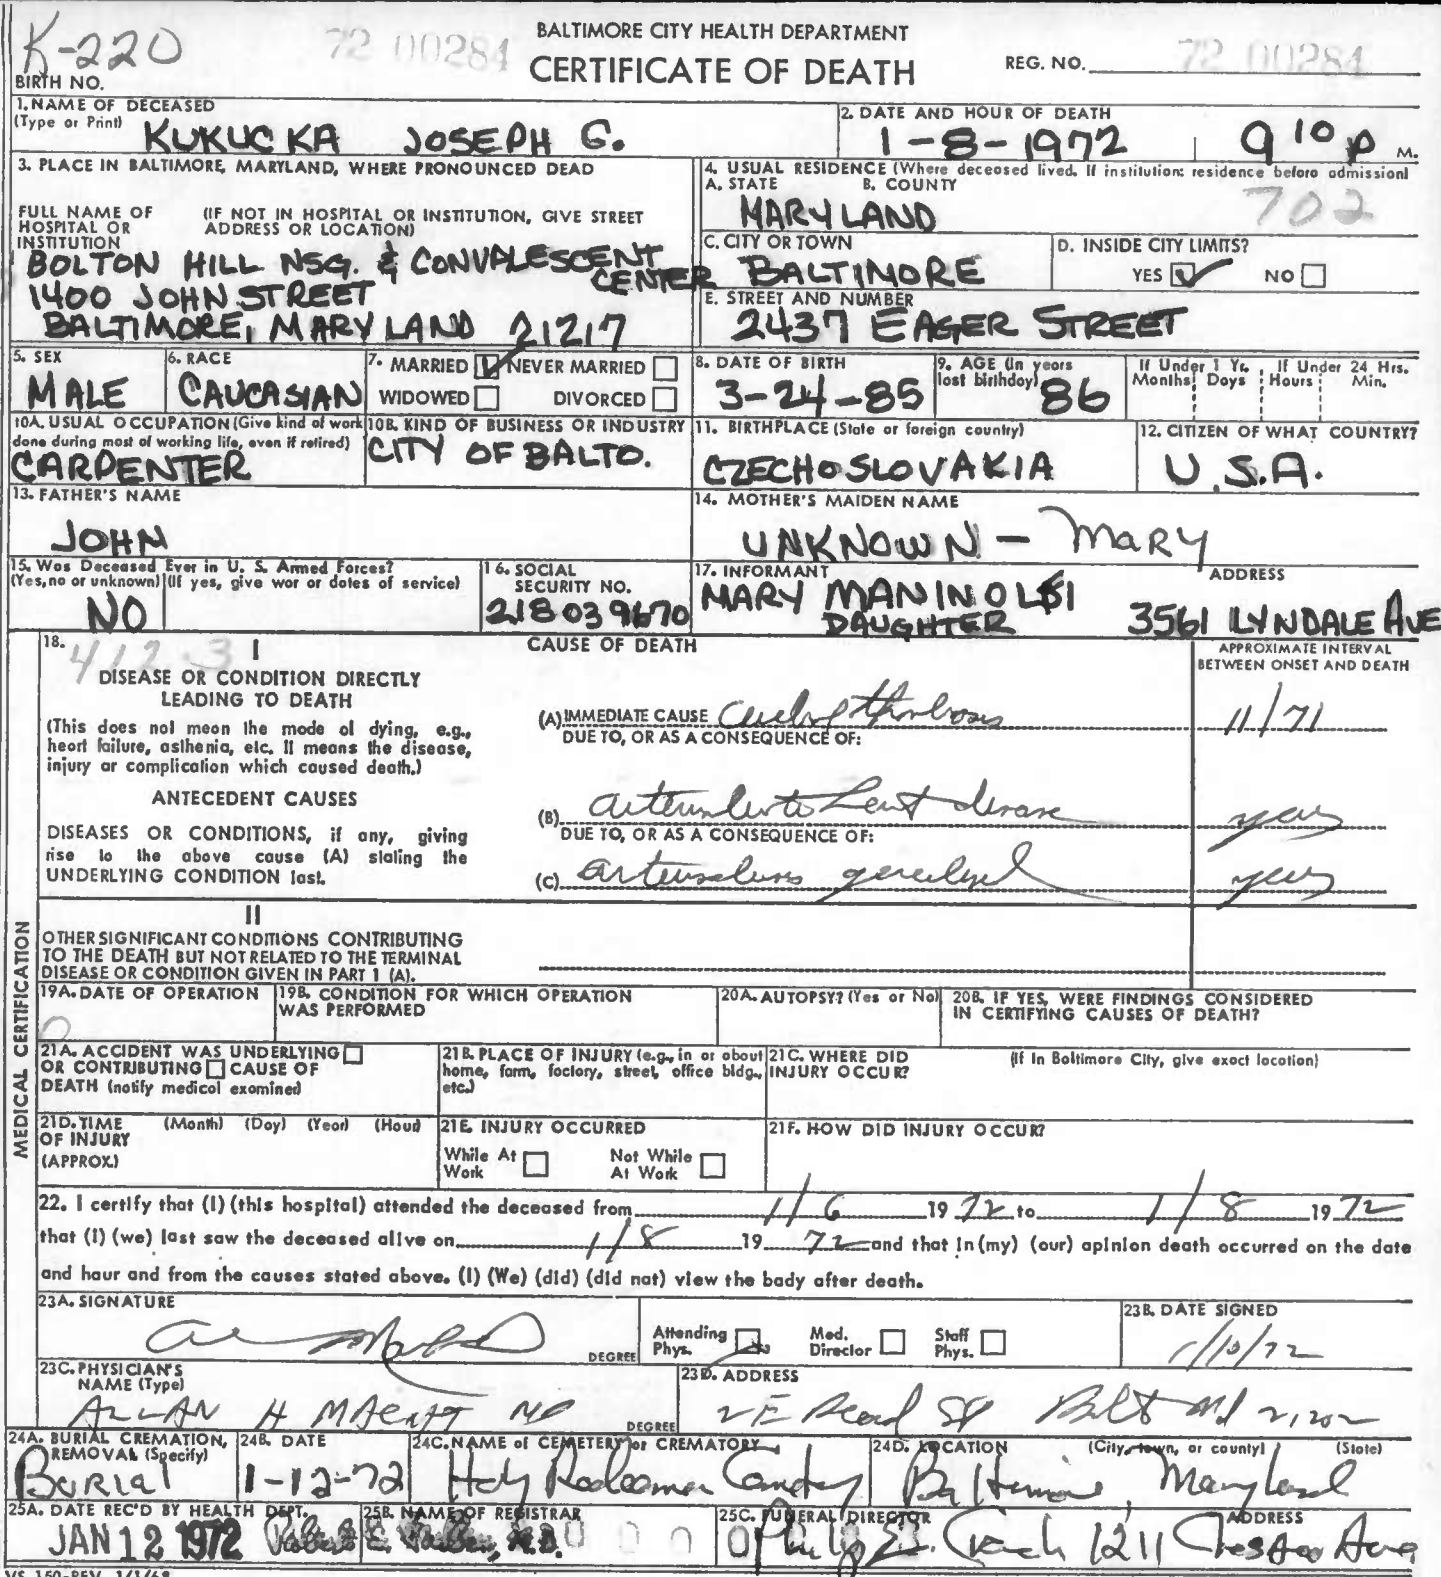 K-220
72 00284
BALTIMORE CITY HEALTH DEPARTMENT
CERTIFICATE OF DEATH
REG. NO. 72 00284
BIRTH NO.
1. NAME OF DECEASED
(Type or Print) KUKUCKA JOSEPH G.
2. DATE AND HOUR OF DEATH
1-8-1972 9 10 P M.
3. PLACE IN BALTIMORE, MARYLAND, WHERE PRONOUNCED DEAD
FULL NAME OF HOSPITAL OR INSTITUTION
(IF NOT IN HOSPITAL OR INSTITUTION, GIVE STREET ADDRESS OR LOCATION)
BOLTON HILL NSG. & CONVALESCENT CENTER
1400 JOHN STREET
BALTIMORE, MARYLAND 21217
4. USUAL RESIDENCE (Where deceased lived. If institution: residence before admission)
A. STATE B. COUNTY
MARYLAND 702
C. CITY OR TOWN
BALTIMORE
D. INSIDE CITY LIMITS?
YES NO
E. STREET AND NUMBER
2437 EAGER STREET
5. SEX
MALE
6. RACE
CAUCASIAN
7. MARRIED NEVER MARRIED
WIDOWED DIVORCED
8. DATE OF BIRTH
3-24-85
9. AGE (In years last birthday)
86
If Under 1 Yr. Months Days
If Under 24 Hrs. Hours Min.
10A. USUAL OCCUPATION (Give kind of work done during most of working life, even if retired)
CARPENTER
10B. KIND OF BUSINESS OR INDUSTRY
CITY OF BALTO.
11. BIRTHPLACE (State or foreign country)
CZECHOSLOVAKIA
12. CITIZEN OF WHAT COUNTRY?
U.S.A.
13. FATHER'S NAME
JOHN
14. MOTHER'S MAIDEN NAME
UNKNOWN - MARY
15. Was Deceased Ever in U. S. Armed Forces?
(Yes, no or unknown) (If yes, give war or dates of service)
NO
16. SOCIAL SECURITY NO.
218039670
17. INFORMANT ADDRESS
MARY
DAUGHTER 3561 LYNDALE AVE
MEDICAL CERTIFICATION
18. 412.3 I
DISEASE OR CONDITION DIRECTLY
LEADING TO DEATH
(This does not mean the mode of dying, e.g.,
heart failure, asthenia, etc. It means the disease,
injury or complication which caused death.)
ANTECEDENT CAUSES
DISEASES OR CONDITIONS, if any, giving
rise to the above cause (A) stating the
UNDERLYING CONDITION last.
CAUSE OF DEATH
APPROXIMATE INTERVAL
BETWEEN ONSET AND DEATH
(A) IMMEDIATE CAUSE 11/71
DUE TO, OR AS A CONSEQUENCE OF:
(B) heart disease years
DUE TO, OR AS A CONSEQUENCE OF:
(C) years
II
OTHER SIGNIFICANT CONDITIONS CONTRIBUTING
TO THE DEATH BUT NOT RELATED TO THE TERMINAL
DISEASE OR CONDITION GIVEN IN PART 1 (A).
19A. DATE OF OPERATION
19B. CONDITION FOR WHICH OPERATION
WAS PERFORMED
20A. AUTOPSY? (Yes or No)
20B. IF YES, WERE FINDINGS CONSIDERED
IN CERTIFYING CAUSES OF DEATH?
21A. ACCIDENT WAS UNDERLYING
OR CONTRIBUTING CAUSE OF
DEATH (notify medical examiner)
21B. PLACE OF INJURY (e.g., in or about
home, farm, factory, street, office bldg.,
etc.)
21C. WHERE DID
INJURY OCCUR?
(If in Baltimore City, give exact location)
21D. TIME (Month) (Day) (Year) (Hour)
OF INJURY
(APPROX.)
21E. INJURY OCCURRED
While At Work Not While At Work
21F. HOW DID INJURY OCCUR?
22. I certify that (I) (this hospital) attended the deceased from 1/6 19 72 to 1/8 19 72
that (I) (we) last saw the deceased alive on 1/8 19 72 and that in (my) (our) opinion death occurred on the date
and hour and from the causes stated above. (I) (We) (did) (did not) view the body after death.
23A. SIGNATURE
DEGREE
Attending Phys. Med. Director Staff Phys.
23B. DATE SIGNED
1/10/72
23C. PHYSICIAN'S
NAME (Type)
ALLAN H MD
DEGREE
23D. ADDRESS
2 E Read St Balt Md 21202
24A. BURIAL CREMATION,
REMOVAL (Specify)
Burial
24B. DATE
1-12-72
24C. NAME of CEMETERY or CREMATORY
Holy Redeemer Cemetery
24D. LOCATION (City, town, or county) (State)
Baltimore, Maryland
25A. DATE REC'D BY HEALTH DEPT.
JAN 12 1972
25B. NAME OF REGISTRAR
Robert E.
25C. FUNERAL DIRECTOR ADDRESS
Philip E. 1211 Chester Ave
VS 150-REV. 1/1/68